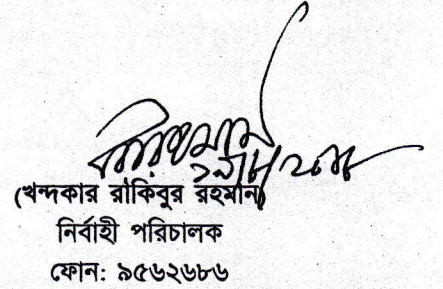 (খন্দকার রাকিবুর রহমান)
নির্বাহী পরিচালক
ফোন: ৯৫৬২৬৮৬